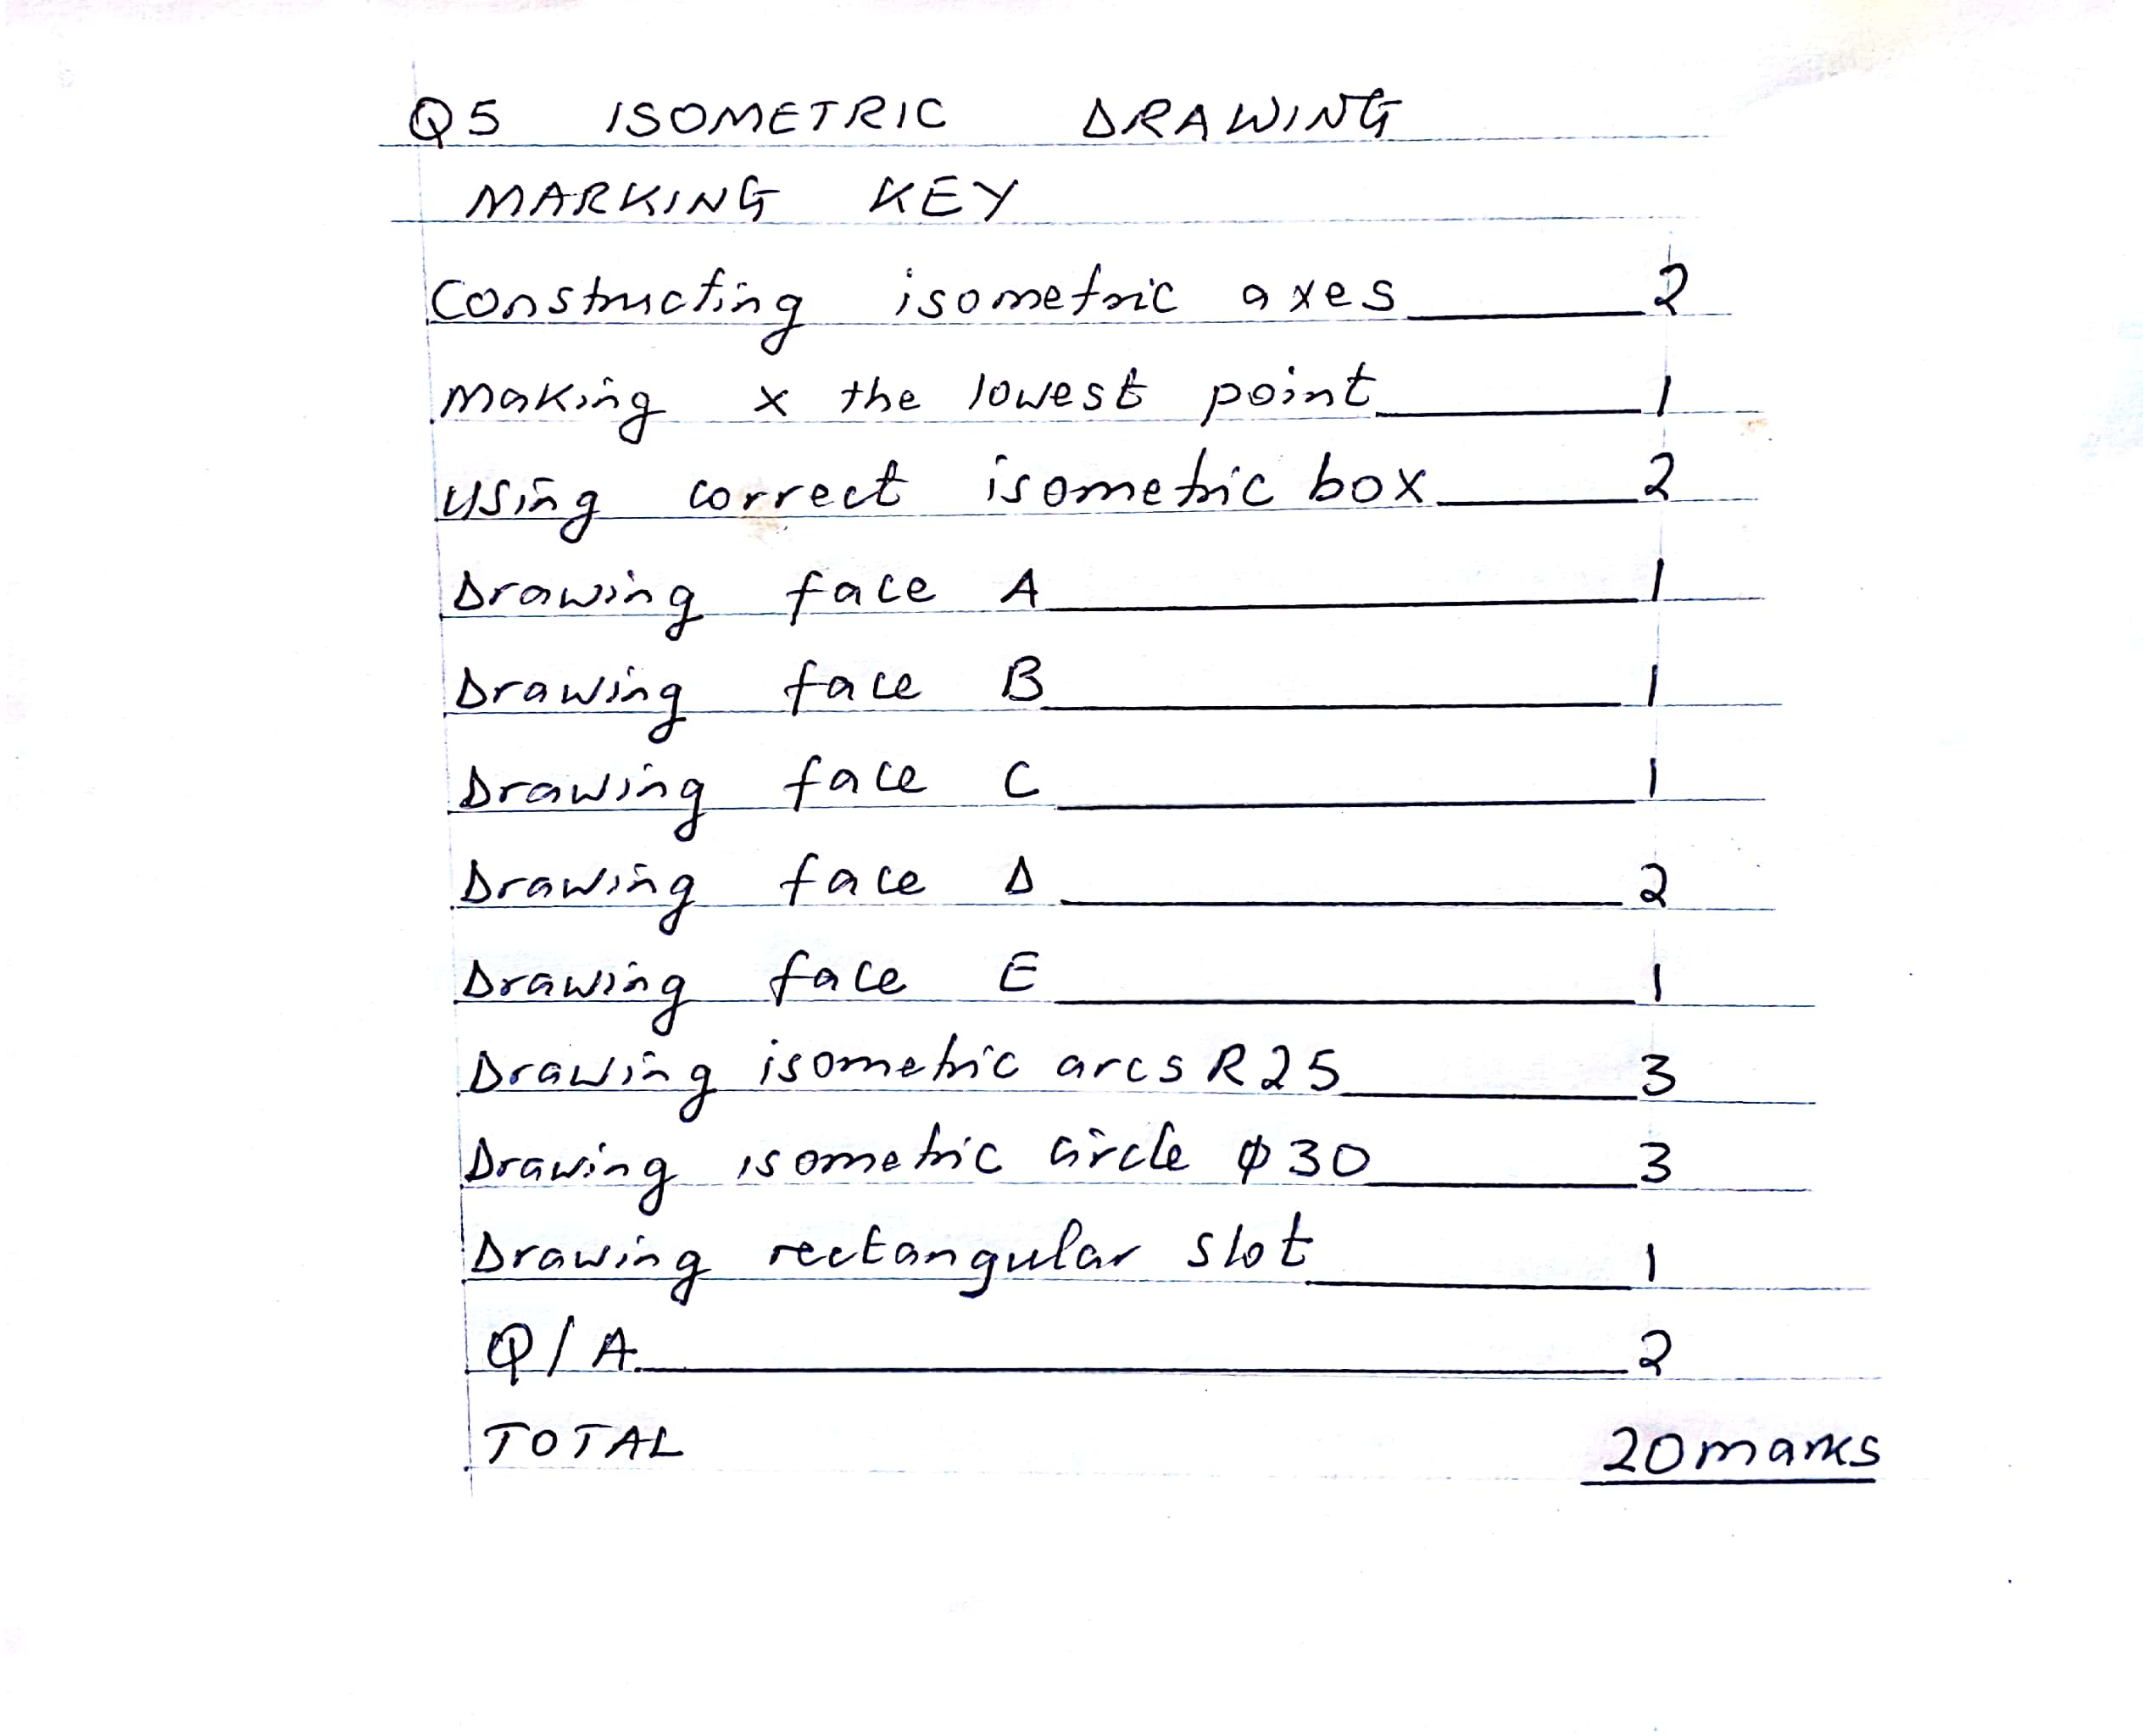 Q5 ISOMETRIC DRAWING
MARKING KEY
Constructing isometric axes 2
Making x the lowest point 1
Using correct isometric box 2
Drawing face A 1
Drawing face B 1
Drawing face C 1
Drawing face D 2
Drawing face E 1
Drawing isometric arcs R25 3
Drawing isometric circle φ30 3
Drawing rectangular slot 1
Q/A 2
TOTAL 20 marks